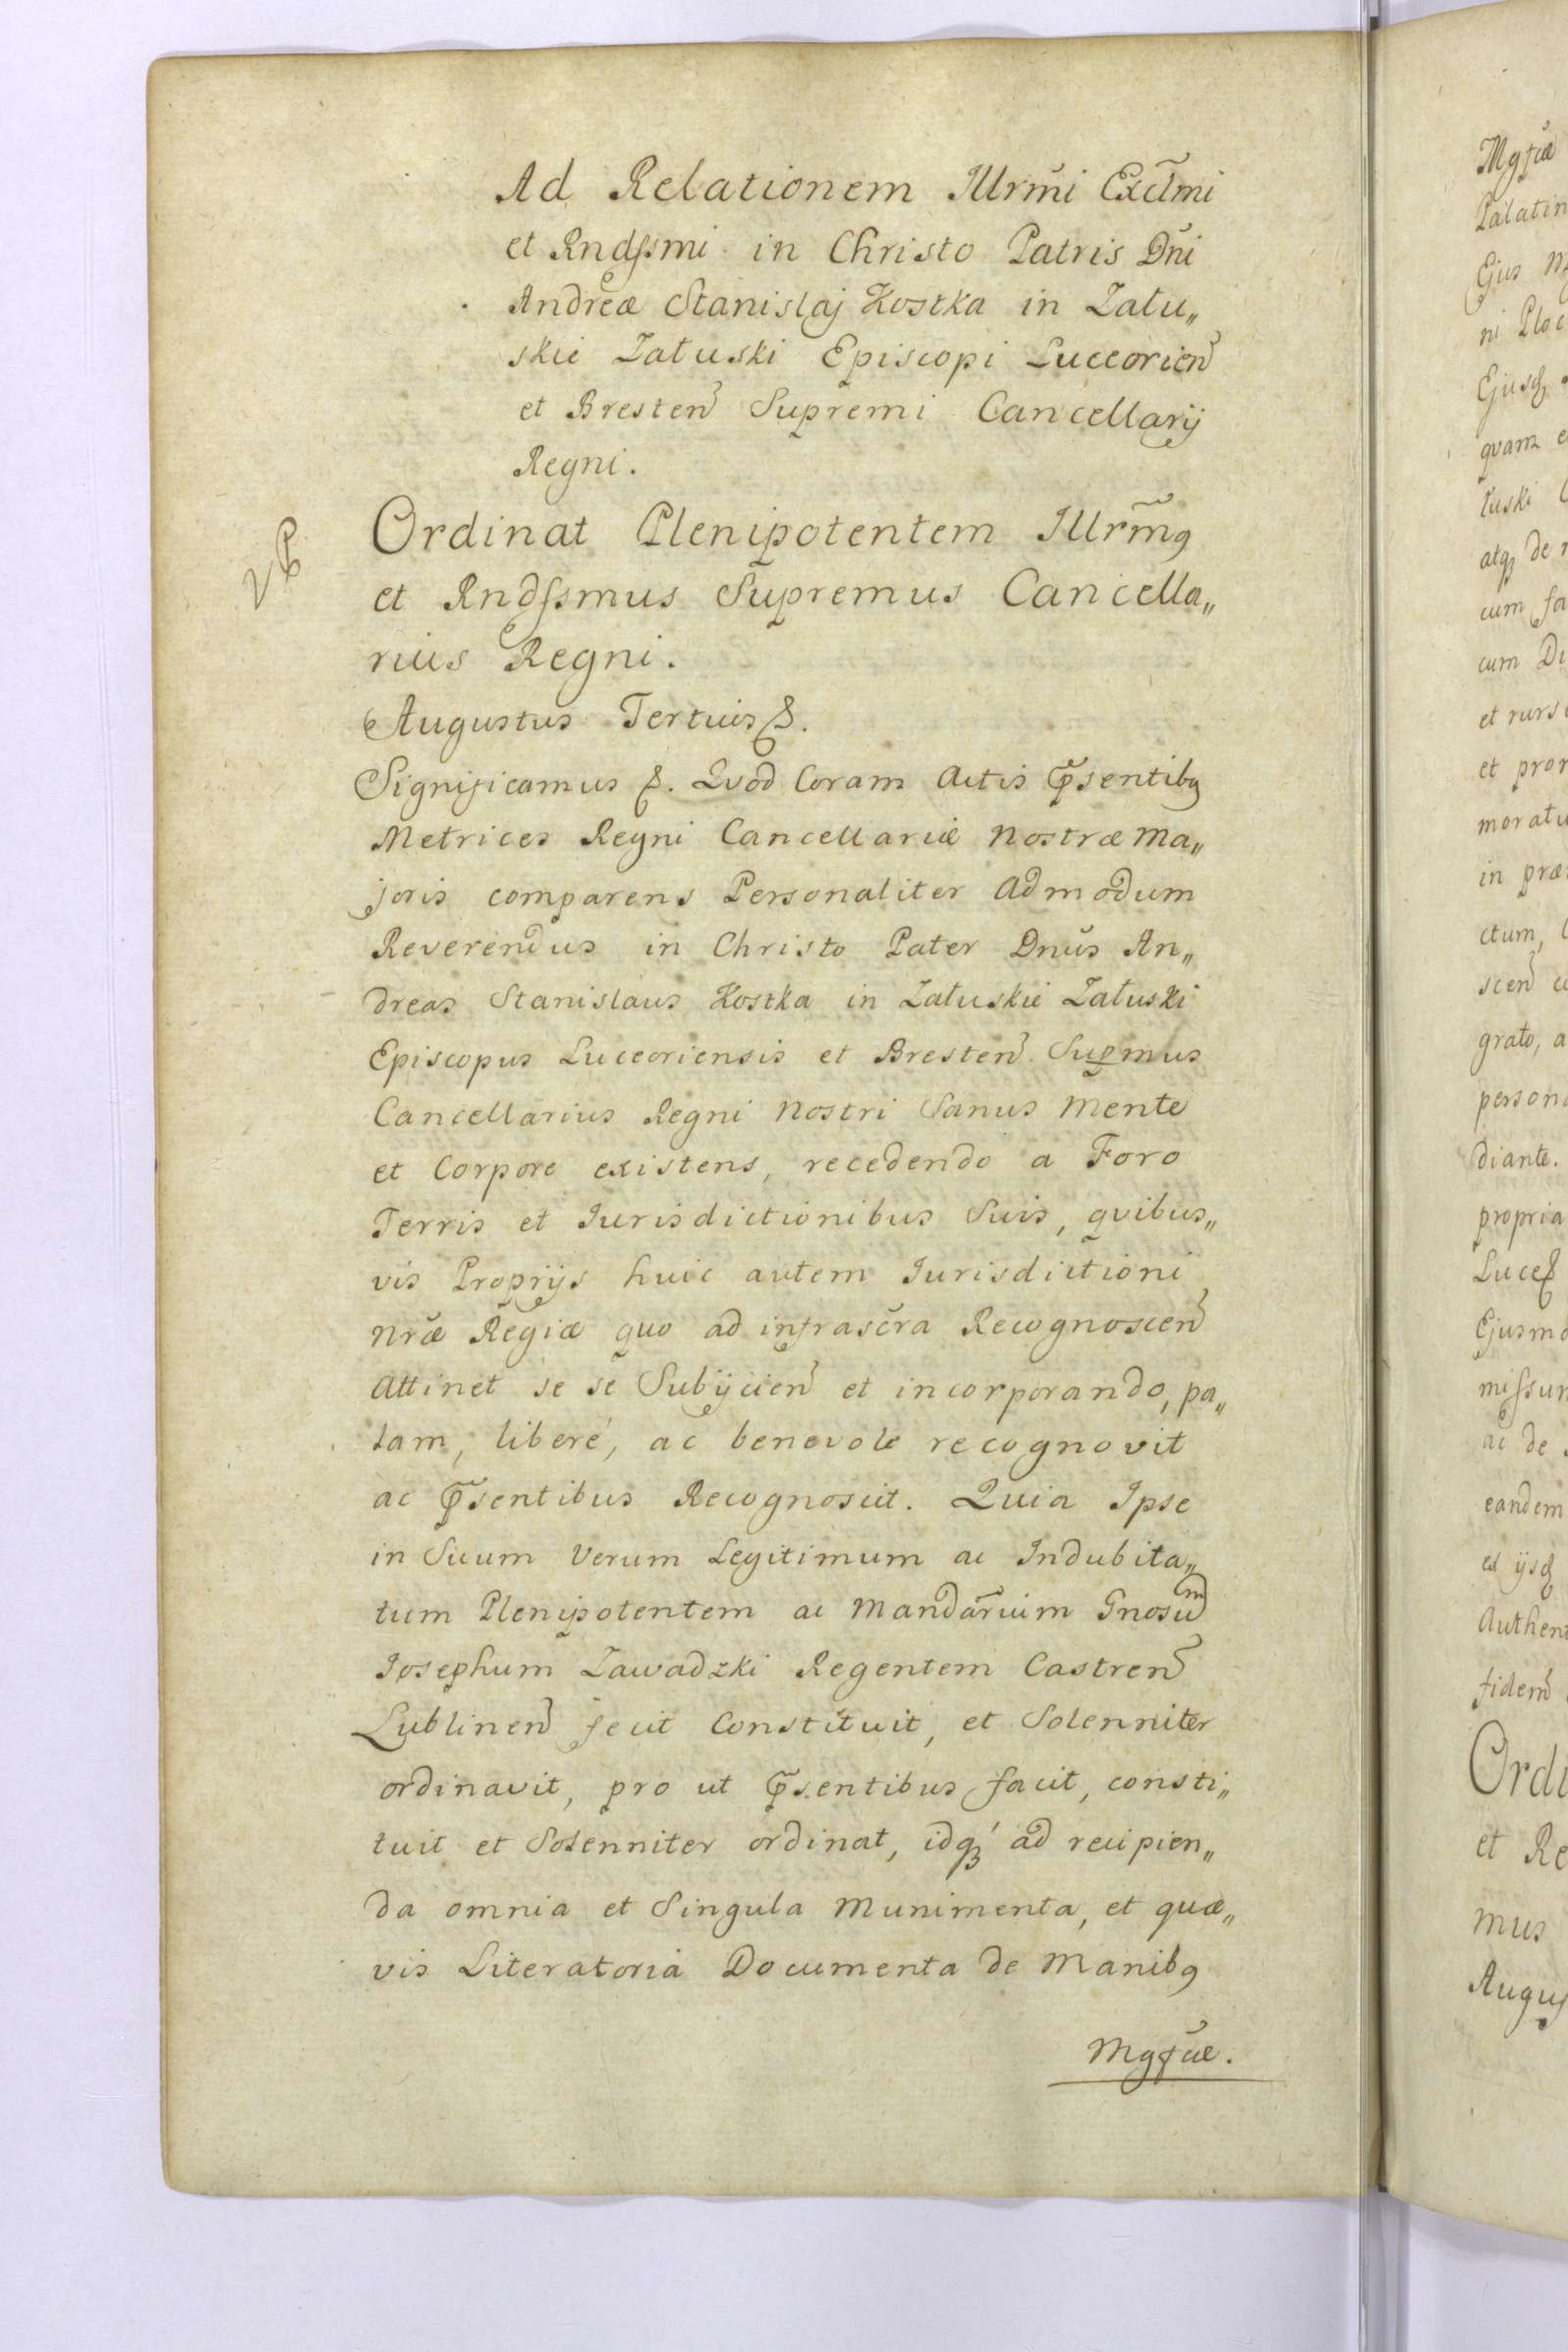 Ad Relationem Illrm̃i Exclm̃i
et Rndſsmi in Christo Patris Dñi
Andreæ Stanislaj Kostka in Zału„
skie Załuski Episcopi Luceorien̄
et Bresten̄ Supremi Cancellarij
Regni.
Ordinat Plenipotentem Illrm̃9
et Rndſsmus Supremus Cancella„
rius Regni.
Augustus Tertius &.
Significamus &. Qvod Coram Actis P̃sentib9
Metrices Regni Cancellariæ Nostræ Ma„
joris comparens Personaliter Admodum
Reverendus in Christo Pater Dnũs An„
dreas Stanislaus Kostka in Załuskie Załuski
Episcopus Luceoriensis et Bresten̄ Sup̱mus
Cancellarius Regni Nostri Sanus Mente
et Corpore existens, recedendo a Foro
Terris et Iurisdictionibus Suis, qvibus„
vis Proprijs huic autem Iurisdictioni
Nr̃æ Regiæ quo ad infrascr̃a Recognoscen̄
Attinet se se Subijcien̄ et incorporando, pa„
lam, liberé, ac benevole recognovit
ac P̃sentibus Recognoscit. Quia Ipse
in Suum Verum Legitimum ac Indubita„
tum Plenipotentem ac Mandãrium Gnosum̄
Iosephum Zawadzki Regentem Castren̄
Lublinen̄ fecit Constituit, et Solenniter
ordinavit, pro ut P̃sentibus facit, consti„
tuit et Solenniter ordinat, idqꝫ ad recipien„
da omnia et Singula Munimenta, et quæ„
vis Literatoria Documenta de Manib9
Mgfcæ.
Mgfcæ
Palatin
Ejus
ni Ploc
Ejusqꝫ
qvam
łuski
atqꝫ de
cum fa
cum
et rurs
et pror
moratu
in præ
ctum,
scen̄
grato, a
persona
diante.
propria
Luce&
Ejusmo
miſsu
ac de
eandem
ijsqꝫ
Authent
fidem̄
Ordi
et Re
mus
Augus